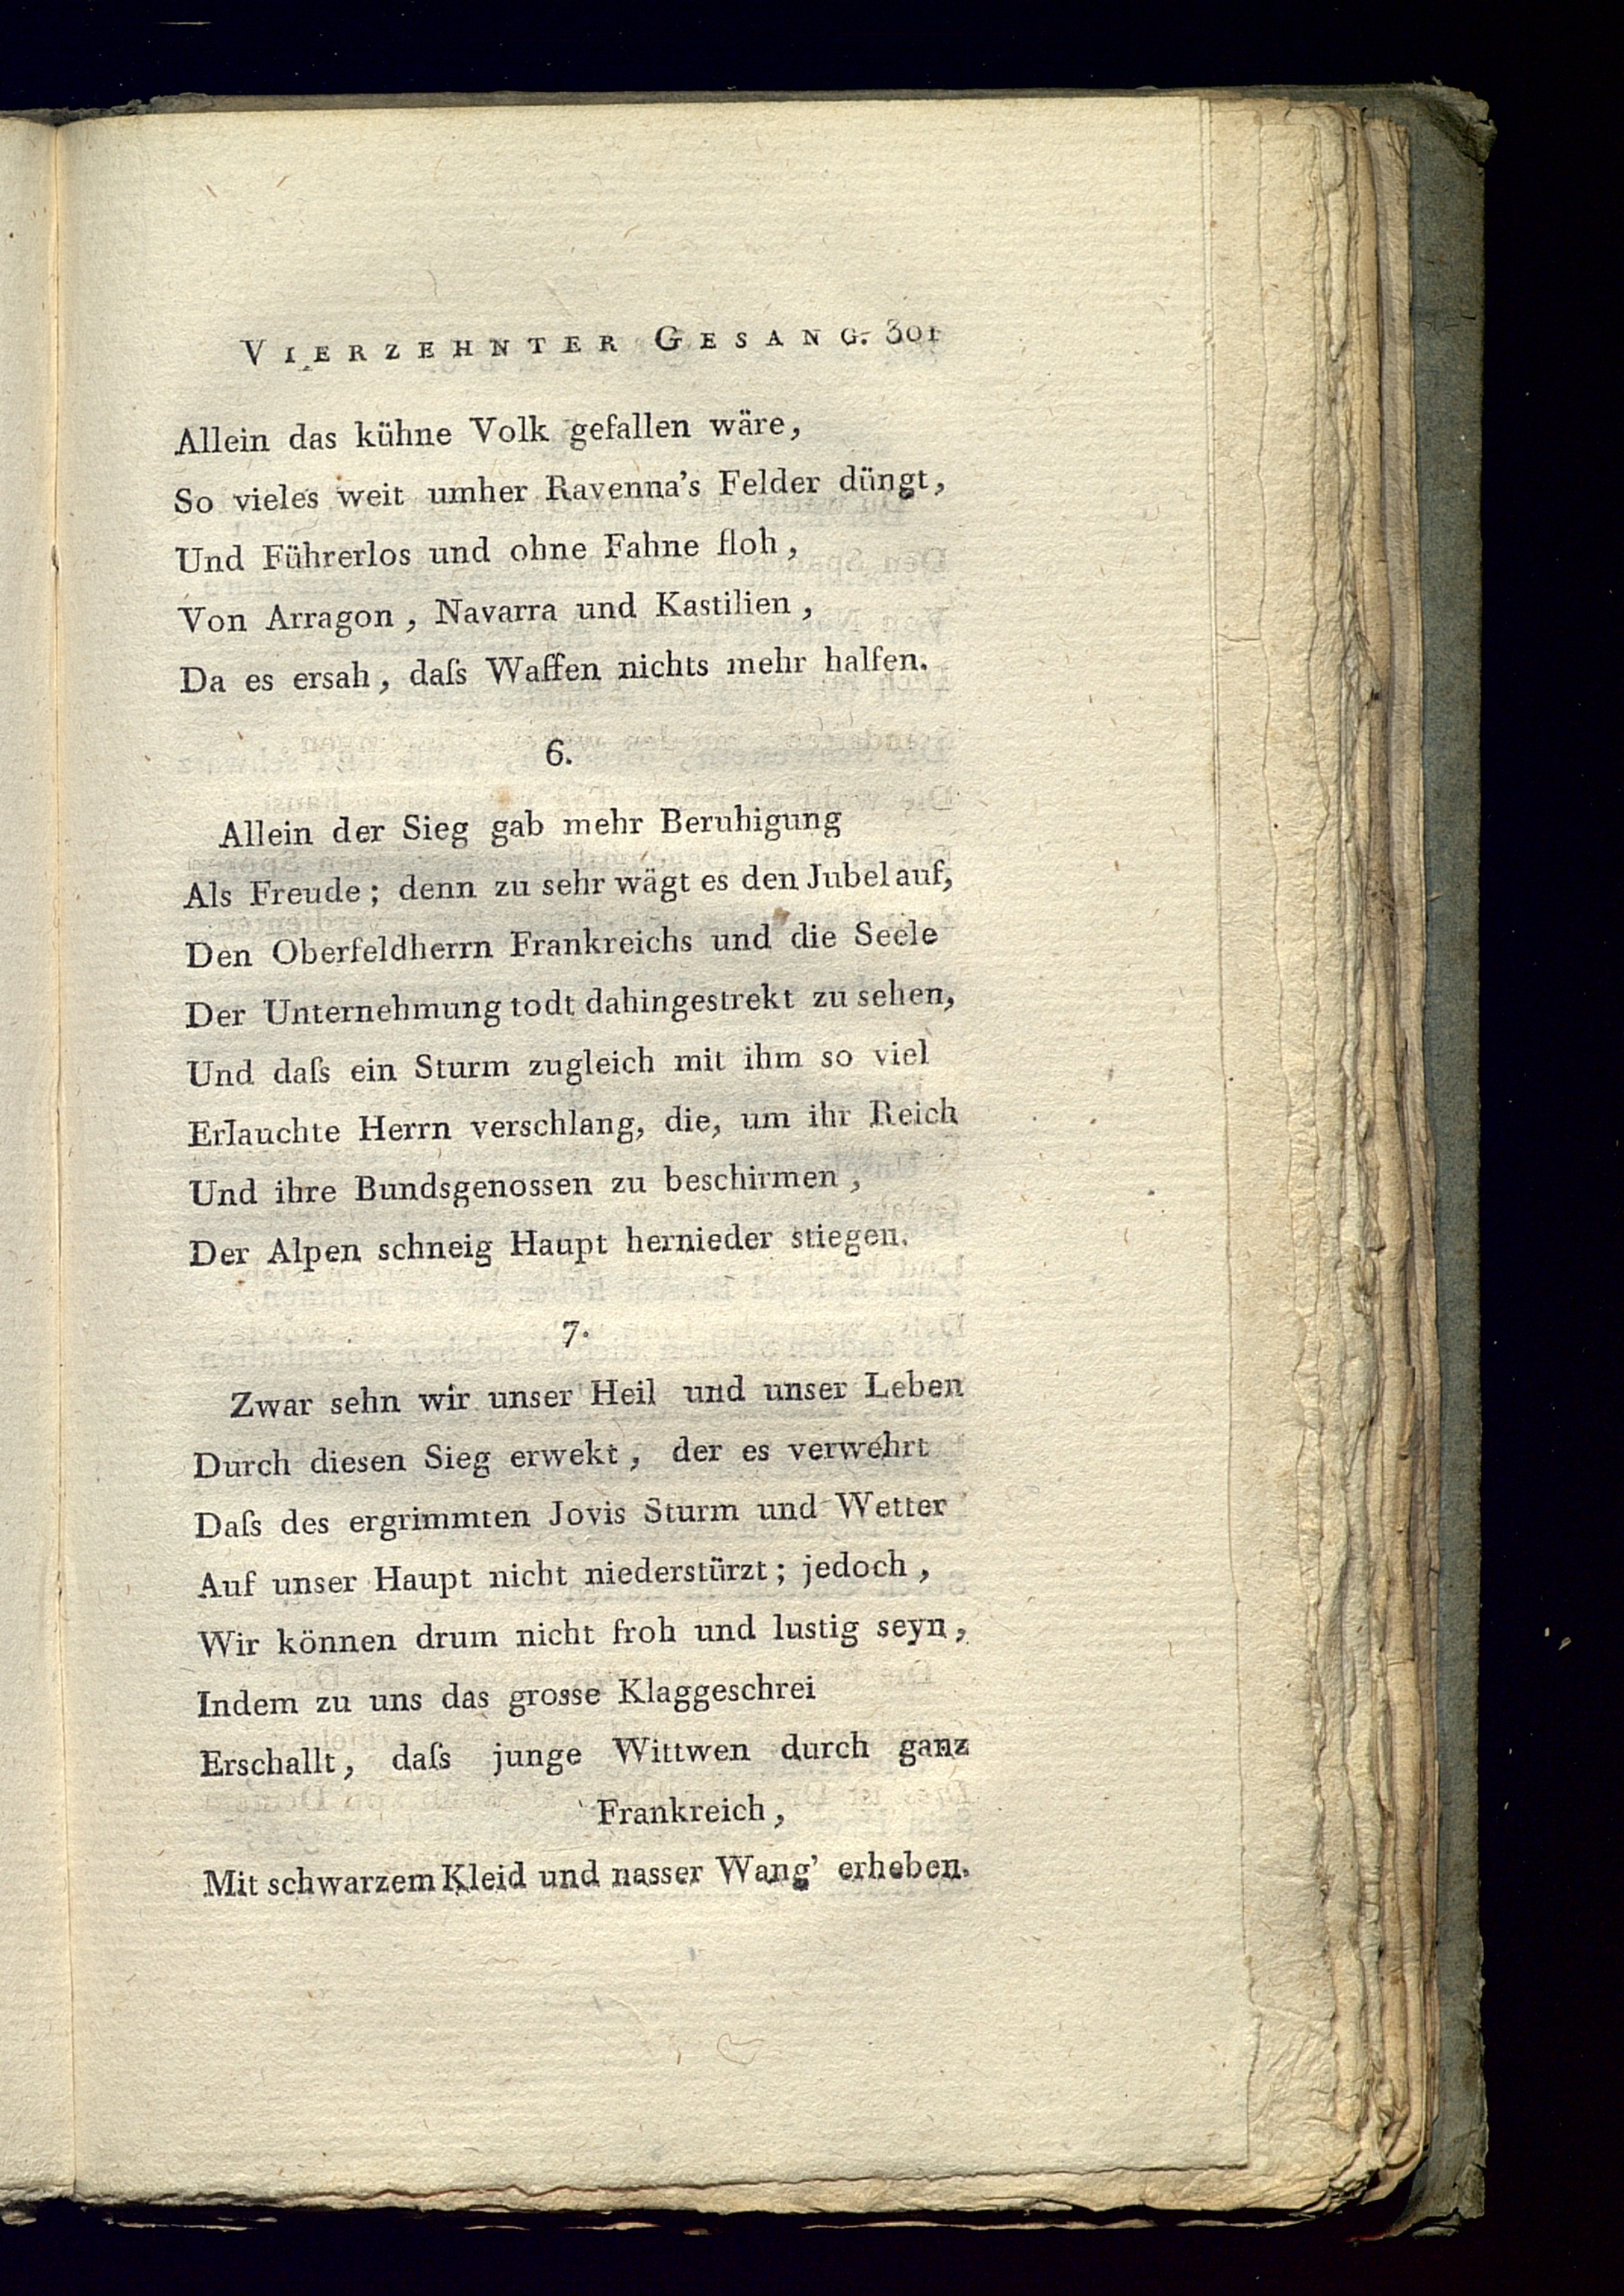 VIERZEHNTER GESANG. 301
Allein das kühne Volk gefallen wäre,
So vieles weit umher Ravenna's Felder düngt,
Und Führerlos und ohne Fahne floh,
Von Arragon, Navarra und Kastilien,
Da es ersah, daſs Waffen nichts mehr halfen.
6.
Allein der Sieg gab mehr Beruhigung
Als Freude; denn zu sehr wägt es den Jubel auf,
Den Oberfeldherrn Frankreichs und die Seele
Der Unternehmung todt dahingestrekt zu sehen,
Und daſs ein Sturm zugleich mit ihm so viel
Erlauchte Herrn verschlang, die, um ihr Reich
Und ihre Bundsgenossen zu beschirmen,
Der Alpen schneig Haupt hernieder stiegen.
7.
Zwar sehn wir unser Heil und unser Leben
Durch diesen Sieg erwekt, der es verwehrt
Daſs des ergrimmten Jovis Sturm und Wetter
Auf unser Haupt nicht niederstürzt; jedoch,
Wir können drum nicht froh und lustig seyn,
Indem zu uns das grosse Klaggeschrei
Erschallt, daſs junge Wittwen durch ganz
Frankreich,
Mit schwarzem Kleid und nasser Wang' erheben.